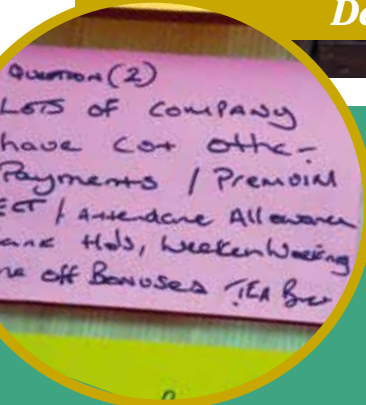 De
QUESTION (2)
LOTS OF COMPANY
have cot othe-
Payments / Premoim
ECT / Attendance Allowance
ank Hols, Weeken Working
ne off Bonuses TEA Bre